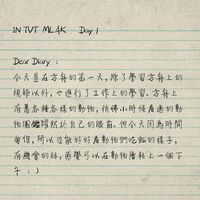 IN TVT MLAK Day 1
Dear Diary :
今天是在方舟的第一天，除了學習方舟上的
規矩以外，也進行了工作上的學習。方舟上
有著各種各樣的動物，彷彿小時候看過的動
物圖鑑躍然於自己的眼前。但今天因為時間
匆促，所以沒能好好看動物們吃飯的樣子，
有機會的話，感覺可以在動物層耗上一個下
午 : )